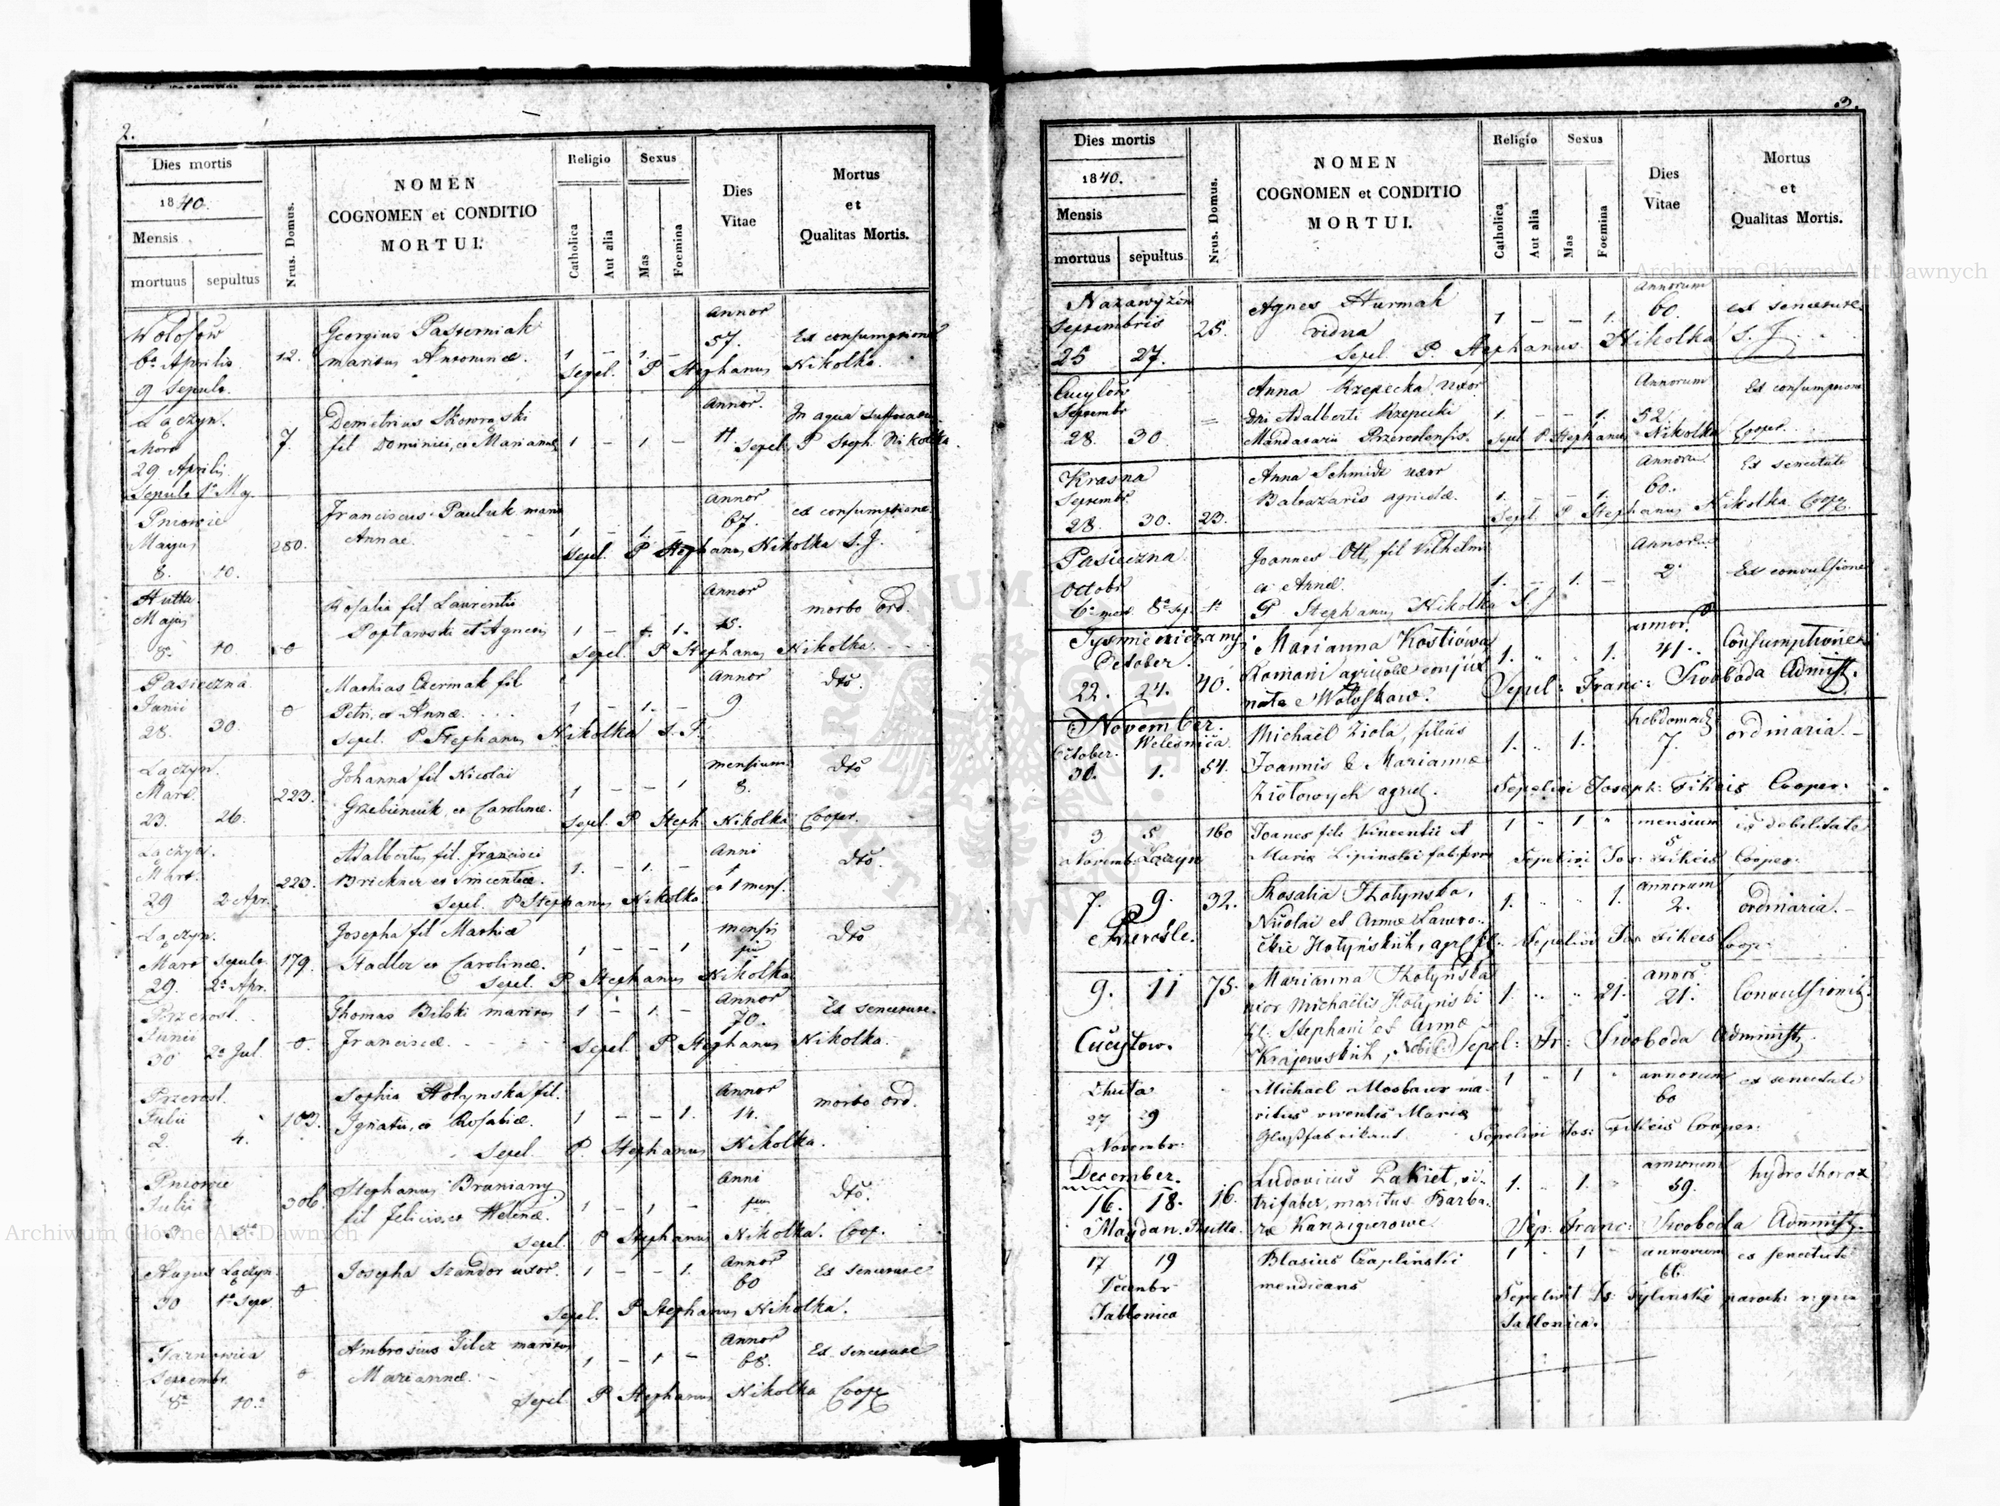 2.
Dies mortis
1840.
Mensis
mortuus sepultus
Nrus. Domus.
NOMEN
COGNOMEN et CONDITIO
MORTUI.
Religio
Catholica
Aut alia
Sexus
Mas
Foemina
Dies
Vitae
Mortus
et
Qualitas Mortis.
Wołosow
6a Aprilis 12.
9 Sepult.
Georgius Pasterniak
maritus Antoninae
1 – 1. –
Annor
57.
Ex consumptione
Sepel. P Stephanus Nikolka.
Łączyn.
7.
29 Aprilis
Demetrius Skowroński
fil Dominici, et Marianae
1 – 1 –
Annor.
In aqua suffocatus
Sepel. P Steph. Nikolka.
Pniowie
Majus 280.
8. 10.
Franciscus Pauluk
Annae
1 – 1. –
Annor
67.
ex consumptione
Sepel. P Stephanus Nikolka S. J.
Hutta
Majus
8. 10
Rosalia fil Laurentii
et Agnetis
Annor
morbo ord.
Sepel P Stephanus Nikolka.
Pasieczna
Junii
28. 30.
Mathias Czermak fil
Petri, et Annae
1 – 1. –
Annor
9
dto.
Sepel. P. Stephanus Nikolka S. J.
Łączyn.
Mart. 223.
23. 26.
Johanna fil Nicolai
et Carolinae.
1 – – 1
mensium
8.
dto
Sepel P Steph. Nikolka Cooper.
Łączyn.
Mart. 223.
29 2 Apr.
Adalbertus fil. Francisci
Brickner et Vincentiae.
1. – 1. –
Anni
et 1 mens.
dto.
Sepel. P Stephanus Nikolka.
Łączyn.
Mart Sepult. 179.
29. 2a Apr.
Josepha fil Mathiae
Stadler et Carolinae.
1 – – 1
mensis
dto
Sepel. P Stephanus Nikolka
Przerosl.
Junii
30 2a Jul.
Thomas Bilski maritus
Franciscae.
1 – 1. –
Annor
70.
Ex senectute.
Sepel. P. Stephanus Nikolka.
Przerosl.
Julii 103.
2. 4.
Sophia Hołynska fil.
Ignatii, et Rosaliae.
1 – – 1.
Annor
14.
morbo ord.
Sepel. P Stephanus Nikolka.
Pniowie
Julii 306.
3
Stephanus
fil Felicis, et Helenae.
1 – 1 –
Anni
dto.
Sepel. P Stephanus Nikolka. Coop.
August Łączyn.
30 1a Sept.
Josepha Szandor uxor.
1 – – 1.
Annor
60
Ex senectute
Sepel. P Stephanus Nikolka.
Tarnowica
Septembr.
8a 10.
Ambrosius Gilcz maritus
Mariannae.
1 – 1 –
Annor
68.
Ex senectute
Sepel P Stephanus Nikolka Coop.
3.
Dies mortis
1840.
Mensis
mortuus sepultus
Nrus. Domus.
NOMEN
COGNOMEN et CONDITIO
MORTUI.
Religio
Catholica
Aut alia
Sexus
Mas
Foemina
Dies
Vitae
Mortus
et
Qualitas Mortis.
Septembris 25.
25 27.
Agnes Hurmak
vidua
1 – – 1.
Annorum
60.
ex senectute
Sepel. P. Stephanus Nikolka S. J.
Cucyłow
Septembr
28. 30.
Anna Rzepecka uxor
Dni Adalberti Rzepecki
Mandatarii Przeroslensis.
1. – – 1.
Annorum
52
Ex consumptione
Sepel P. Stephanus Nikolka Cooper.
Krasna
Septembr.
28. 30. 23.
Anna Schmidt uxor
Baltazaris agricolae.
1. – – 1.
Annoru
60.
Ex senectute
Sepel P Stephanus Nikolka Coop.
Pasieczna
Octobr
Joannes Ott, fil Vilhelmi
et Annae.
1. – 1. –
Annoru
2
Ex convulsione
P Stephanus Nikolka S. J
October.
22. 24. 40.
Marianna Kostiówa
Romani agricolae conjux
nata
1. 1.
annor.
41.
Consumptione
Sepel: Franc: Swoboda Admist.
November.
October. Welesnica
30. 1. 54.
Michaël Zioła, filius
Joannis & Mariannae
Ziołowych agric.
1. 1.
hebdomad
7.
ordinaria.
Sepelivi Joseph: Fikeis Cooper.
3 5 160
Novembr Łączyn
Joanes fili Vincentii et
Mariae Lipinski
1 1
mensium
5
ex debilitate
Sepelivi Jos: Fikeis Cooper.
7. 9. 32.
Przerośle.
Rosalia Hołynska,
Nicolai et Annae
Hołyńskich, agr.
1. 1.
annorum
2.
ordinaria.
Sepelivi Jos Fikeis Coop.
9. 11 75.
Cucyłow.
Marianna Hołyńska
uxor Michaëlis Hołyński
fil: Stephani et Annae
Krajewskich, Nobil.
1. 21.
annor.
21.
Convulsionib.
Sepel: Fr: Swoboda Administ.
Chuta
27 29
Novembr.
Michael Mosbaur ma-
ritus viventis Mariae
Glassfabrikant.
1 1
annorum
60
ex senectute
Sepelivi Jos: Fikeis Cooper.
December.
16. 18. 16.
Majdan. Hutta.
Ludovicus Pakiet, vi-
trifaber, maritus Barba-
rae
1. 1.
annorum
39.
hydrothorax
Sep: Franc: Swoboda Administ.
17 19
Decembr
Jablonica
Blasius Czaplinski
mendicans
1 1
annorum
66.
ex senectute
Sepelivit
Jablonica.
Archiwum Główne Akt Dawnych
Archiwum Główne Akt Dawnych